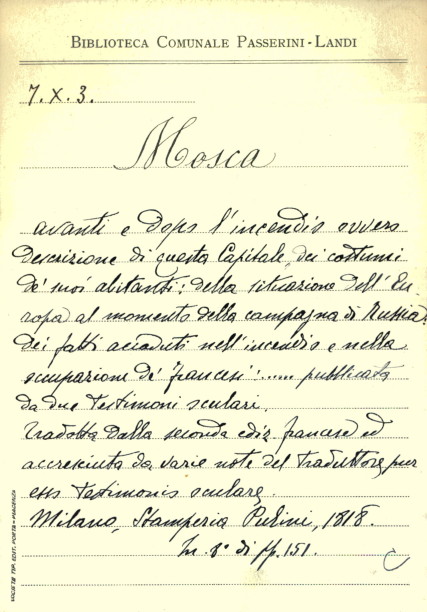 BIBLIOTECA COMUNALE PASSERINI-LANDI
7. X. 3.
Mosca
avanti e dopo l'incendio ovvero
descrizione di questa Capitale, dei costumi
de' suoi abitanti; della situazione dell'Eu
ropa al momento della campagna di Russia,
dei fatti accaduti nell'incendio e nella
occupazione de' francesi!..... pubblicata
da due testimoni oculari.
Tradotta dalla seconda ediz. francese ed
accresciuta da varie note del traduttore, pur
esso testimonio oculare.
Milano, Stamperia 1818.
In 8° di pp. 151.
SOCIETÀ TIP. EDIT. PORTA - PIACENZA